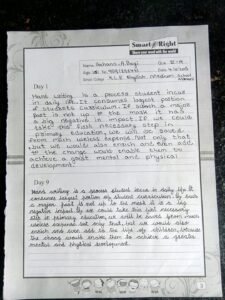 Smart Right
Share your word with the world
Name:
Age:
School / College: K.L.E English Medium School
Day 1
Hand writing is a process student incur
in daily life. It consumes largest portion
of students curriculum. If such a major
part is not up to the mask it had
a big negative impact. If we could
take this first necessary step in
primary education, we will be saved
from much useless expense. Not only that
but we would also enrich and even add
to the change would enable them to
achieve a great mental and physical
development.
Day 9
Hand writing is a process student incur in daily life. It
consumes largest portion of student curriculum. If such
a major part is not up to the mark it is a big
negative impact. If we could take this first necessary
step in primary education, we will be saved from much
useless expense but only that, but we would also
enrich and even add to the life of children, because
the change would enable them to achieve a greater
mental and physical development.